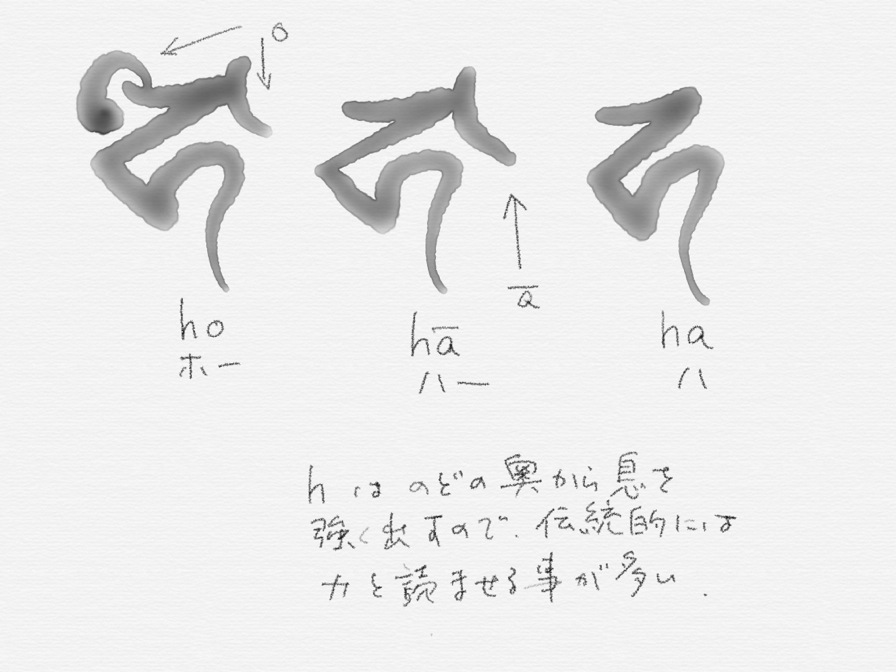 o
𑖮𑖺 𑖮𑖯 𑖮
ā
ho hā ha
ホー ハー ハ
h はのどの奥から息を
強く出すので、伝統的には
カと読ませる事が多い.